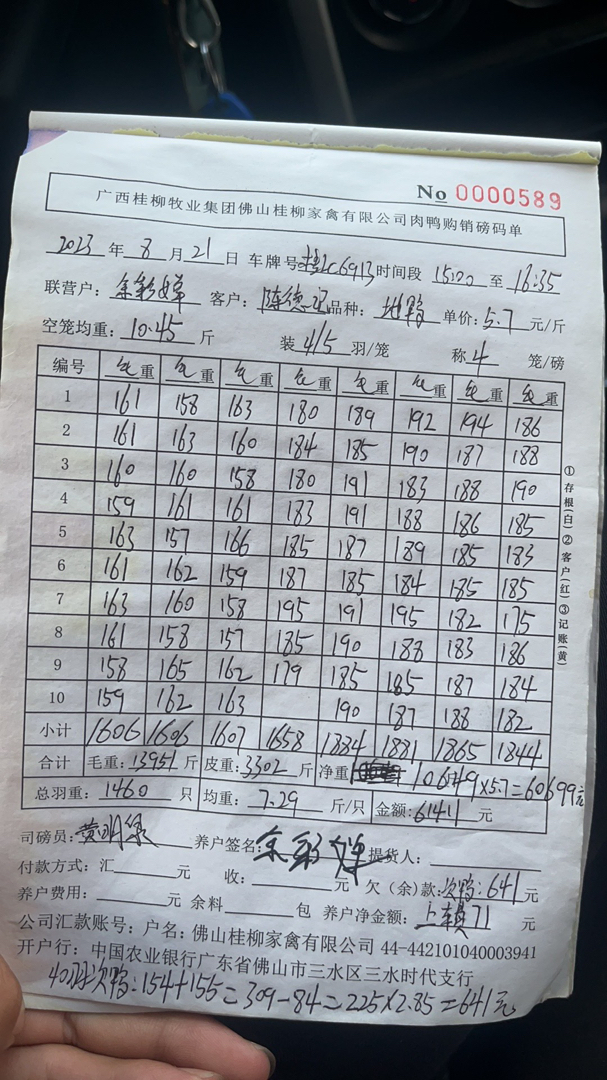 No 0000589
广西桂柳牧业集团佛山桂柳家禽有限公司肉鸭购销磅码单
2023 年 8 月 21 日 车牌号 6913 时间段 15:00 至 16:35
联营户: 余彩婵 客户: 陈德 品种: 地鸭 单价: 5.7 元/斤
空笼均重: 10.45 斤 装 4/5 羽/笼 称 4 笼/磅
编号 毛重 毛重 毛重 毛重 毛重 毛重 毛重 毛重
1 161 158 163 180 189 192 194 186
2 161 163 160 184 185 190 187 188
3 160 160 158 180 191 183 188 190
4 159 161 161 183 191 188 186 185
5 163 157 166 185 187 189 185 183
6 161 162 159 187 185 184 185 185
7 163 160 158 195 191 195 182 175
8 161 158 157 185 190 188 183 186
9 158 165 162 179 185 185 187 184
10 159 162 163 190 187 188 182
小计 1606 1606 1607 1658 1884 1881 1865 1844
合计 毛重: 13951 斤 皮重: 3302 斤 净重 10649×5.7=60699元
总羽重: 1460 只 均重: 7.29 斤/只 金额: 61411 元
司磅员: 黄明 养户签名: 余彩婵 提货人:
付款方式: 汇 元 收: 元 欠(余)款: 次鸭: 641 元
养户费用: 元 余料 包 养户净金额: 上车 71 元
公司汇款账号: 户名: 佛山桂柳家禽有限公司 44-442101040003941
开户行: 中国农业银行广东省佛山市三水区三水时代支行
40羽次鸭: 154+155=309-84=225×2.85=641元
①存根(白)②客户(红)③记账(黄)